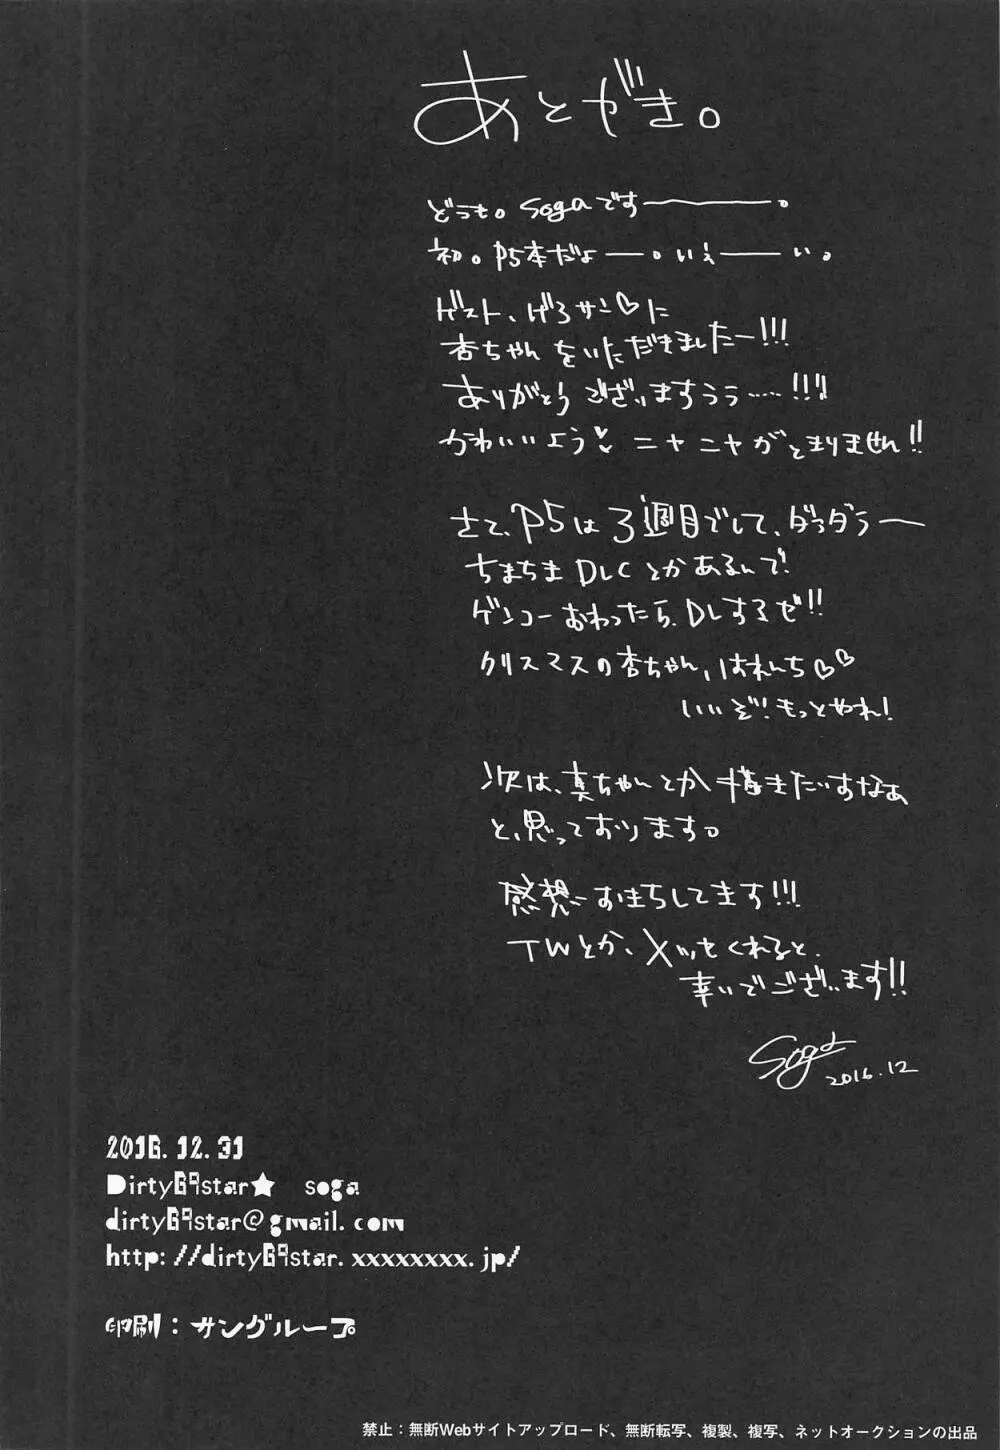 あとがき。
どうも。sogaです――――。
初。P5本だよ――。いぇ――い。
ゲスト、げろサン♡に
杏ちゃんをいただきましたー!!!
ありがとうございますうう……!!!
かわいいよう♡ ニヤニヤがとまりません!!
さて、P5は3週目でして、ダラダラー
ちまちまDLCとかあるんで!
ゲンコーおわったら、DLするぜ!!
クリスマスの杏ちゃん、はれんち♡♡
いいぞ!もっとやれ!
次は、真ちゃんとか描きたいすなあ
と、思っております。
感想おまちしてます!!!
TWとか、メッセくれると、
幸いでございます!!
Soga
2016.12
2016.12.31
Dirty69star★ soga
dirty69star@gmail.com
http://dirty69star.xxxxxxxx.jp/
印刷：サングループ
禁止：無断Webサイトアップロード、無断転写、複製、複写、ネットオークションの出品